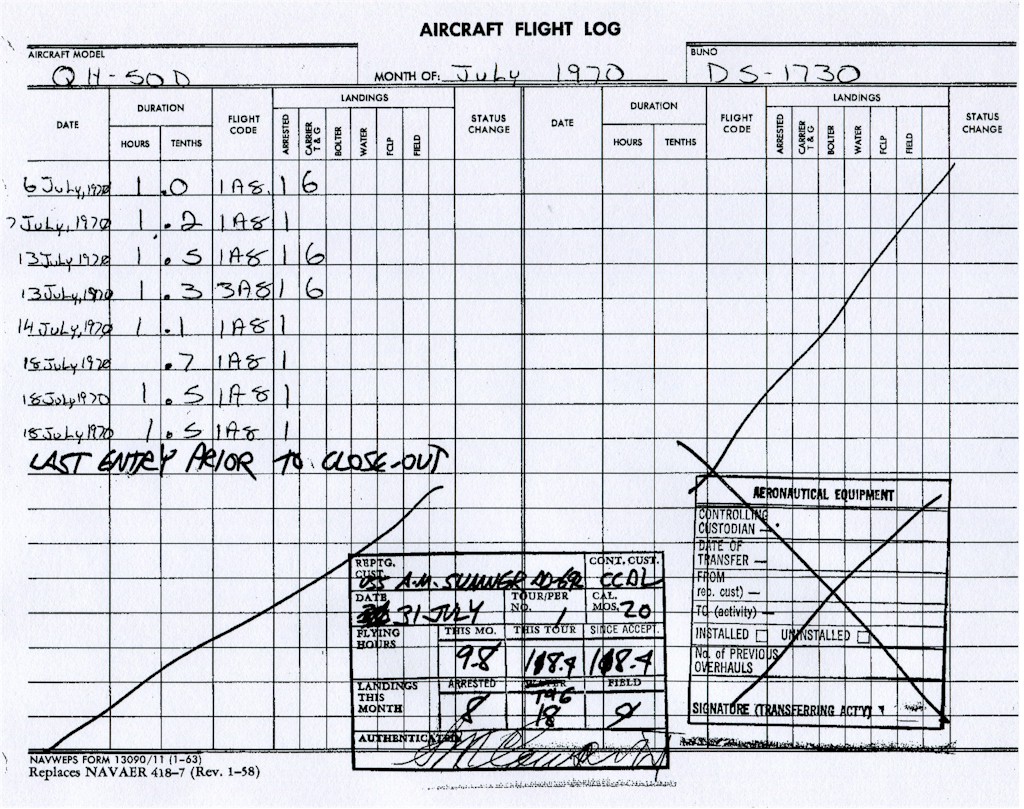 AIRCRAFT FLIGHT LOG
AIRCRAFT MODEL
QH-50D
MONTH OF: July 1970
BUNO
DS-1730
DATE DURATION FLIGHT CODE LANDINGS STATUS CHANGE DATE DURATION FLIGHT CODE LANDINGS STATUS CHANGE
HOURS TENTHS ARRESTED CARRIER T & G BOLTER WATER FCLP FIELD HOURS TENTHS ARRESTED CARRIER T & G BOLTER WATER FCLP FIELD
6 July, 1970 1 .0 1A8. 1 6
7 July, 1970 1 .2 1A8 1
13 July 1970 1 .5 1A8 1 6
13 July, 1970 1 .3 3A8 1 6
14 July, 1970 1 .1 1A8 1
18 July 1970 .7 1A8 1
18 July 1970 1 .5 1A8 1
18 July 1970 1 .5 1A8 1
LAST ENTRY PRIOR TO CLOSE-OUT
REPTG. CUST. USS A.M. SUMNER DD-692
CONT. CUST. CCDL
DATE 31 JULY
TOUR/PER NO. 1
CAL. MOS. 20
FLYING HOURS
THIS MO. THIS TOUR SINCE ACCEPT.
9.8 118.4 118.4
LANDINGS THIS MONTH
ARRESTED WATER T&G FIELD
8 18 0
AUTHENTICATED
AERONAUTICAL EQUIPMENT
CONTROLLING
CUSTODIAN —
DATE OF
TRANSFER —
FROM
rep. cust) —
TO (activity) —
INSTALLED UNINSTALLED
No. of PREVIOUS
OVERHAULS
SIGNATURE (TRANSFERRING ACT'Y)
NAVWEPS FORM 13090/11 (1-63)
Replaces NAVAER 418-7 (Rev. 1-58)